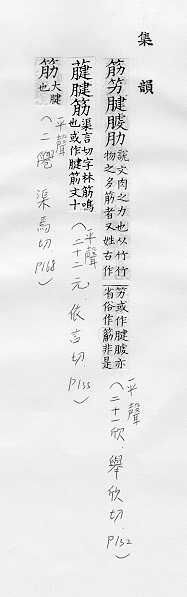 集韻
筋笏腱䐈肋 說文肉之力也从竹竹
物之多筋者又姓古作
笏或作腱䐈亦
省俗作筋非是
平聲
(二十一欣.舉欣切.P132)
腱筋 渠言切字林筋鳴
也或作腱筋文十
平聲
(二十二元.依言切.P135)
筋 大腱
也
平聲
(二僊 渠焉切 P168)